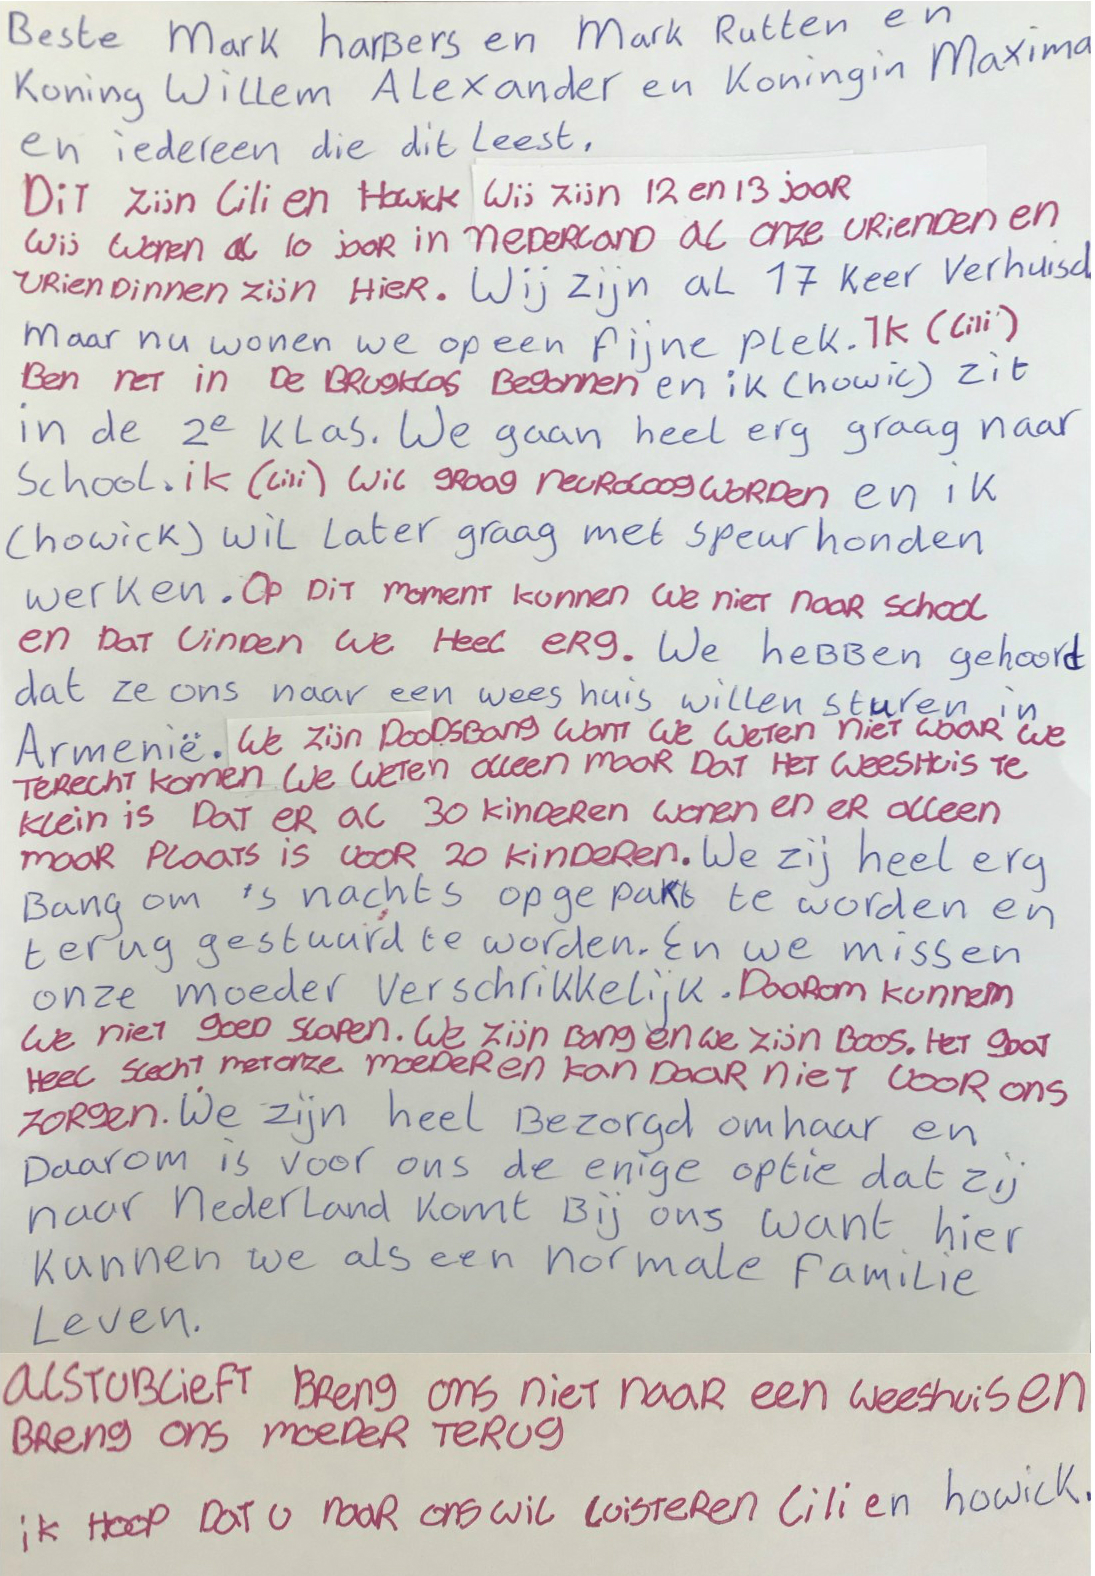 Beste Mark harBers en Mark Rutten en
Koning Willem Alexander en Koningin Maxima
en iedereen die dit Leest.
DiT zijn Lili en Howick Wij zijn 12 en 13 jaar
Wij wonen al 10 jaar in nederland al onze vrienden en
vriendinnen zijn Hier. Wij zijn al 17 Keer Verhuisd
Maar nu wonen we op een fijne plek. Ik (Lili)
Ben net in De Brugklas Begonnen en ik (howic) zit
in de 2e Klas. We gaan heel erg graag naar
School. ik (Lili) Wil graag neuroloog worden en ik
(howick) wil Later graag met speurhonden
werken. Op Dit moment kunnen we niet naar school
en Dat vinden we Heel erg. We heBBen gehoord
dat ze ons naar een weeshuis willen sturen in
Armenië. We zijn DooDsBang want we weten niet waar we
Terecht komen We weten alleen maar Dat Het weesHuis Te
klein is Dat er al 30 kinderen wonen en er alleen
maar Plaats is voor 20 kinderen. We zij heel erg
Bang om 's nachts opgepakt te worden en
terug gestuurd te worden. En we missen
onze moeder Verschrikkelijk. Daarom kunnem
We niet goed slapen. We zijn Bang en we zijn Boos. Het gaat
Heel slecht met onze moeder en kan Daar niet voor ons
zorgen. We zijn heel Bezorgd om haar en
Daarom is voor ons de enige optie dat zij
naar Nederland Komt Bij ons want hier
Kunnen we als een normale familie
Leven.
alstuBlieft Breng ons niet naar een weeshuis en
Breng ons moeder terug
ik Hoop Dat u naar ons wil luisteren Lili en howick.